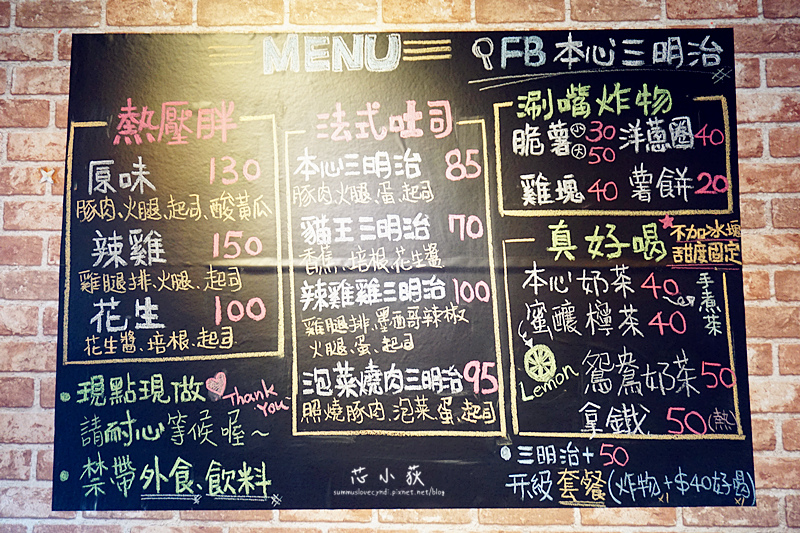 MENU
FB 本心三明治
熱壓胖
原味 130
豚肉、火腿、起司、酸黃瓜
辣雞 150
雞腿排、火腿、起司
花生 100
花生醬、培根、起司
• 現點現做
Thank You~
請耐心等候喔~
• 禁帶外食、飲料
法式吐司
本心三明治 85
豚肉、火腿、蛋、起司
貓王三明治 70
香蕉、培根、花生醬
辣雞雞三明治 100
雞腿排、墨西哥辣椒
火腿、蛋、起司
泡菜燒肉三明治 95
照燒豚肉、泡菜、蛋、起司
涮嘴炸物
脆薯 小 30 大 50 洋蔥圈 40
雞塊 40 薯餅 20
真好喝
不加冰塊
甜度固定
本心奶茶 40
手煮茶
蜜釀檸茶 40
Lemon
鴛鴦奶茶 50
拿鐵 50 (熱)
• 三明治+50
升級套餐(炸物+$40好喝)
芯小荻
summuslovecyndi.pixnet.net/blog